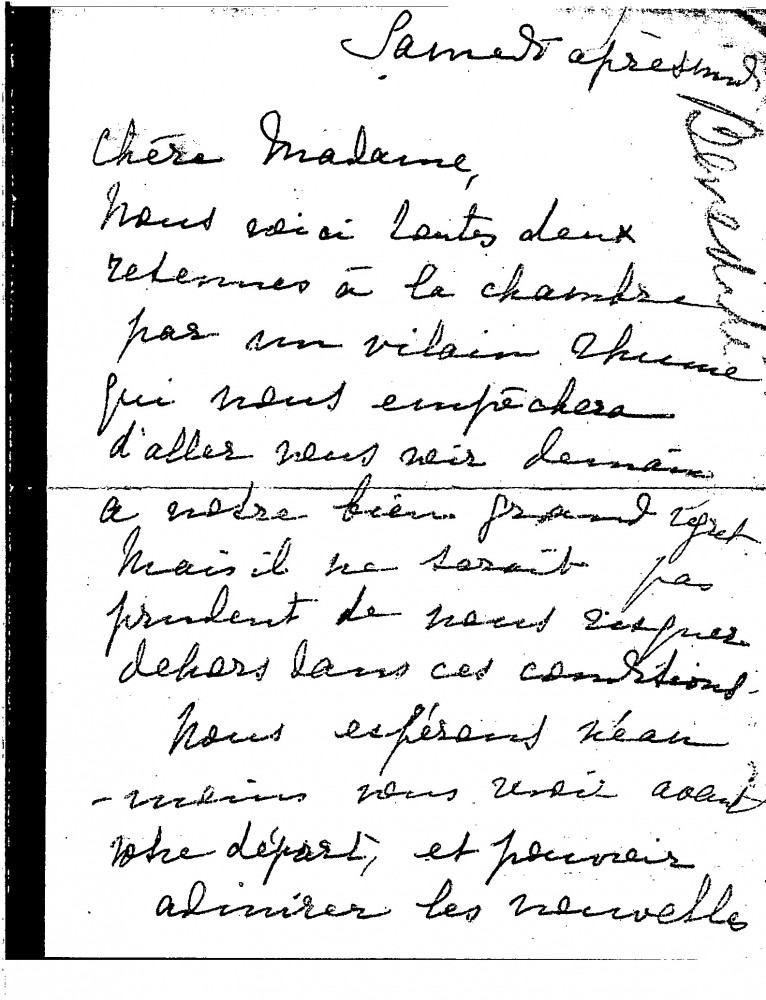 Samedi après midi
Chère Madame,
Nous voici toutes deux
retenues à la chambre
par un vilain rhume
qui nous empêchera
d'aller vous voir demain
à notre bien grand regret
Mais il ne serait pas
prudent de nous risquer
dehors dans ces conditions.
Nous espérons néan
-moins vous revoir avant
votre départ, et pouvoir
admirer les nouvelles